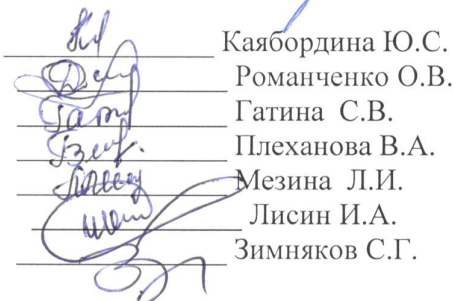 Каябордина Ю.С.
Романченко О.В.
Гатина С.В.
Плеханова В.А.
Мезина Л.И.
Лисин И.А.
Зимняков С.Г.